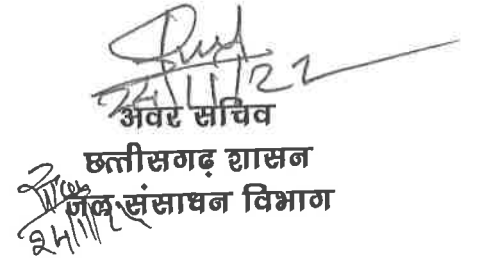 24/11/22
अवर सचिव
छत्तीसगढ़ शासन
जल संसाधन विभाग